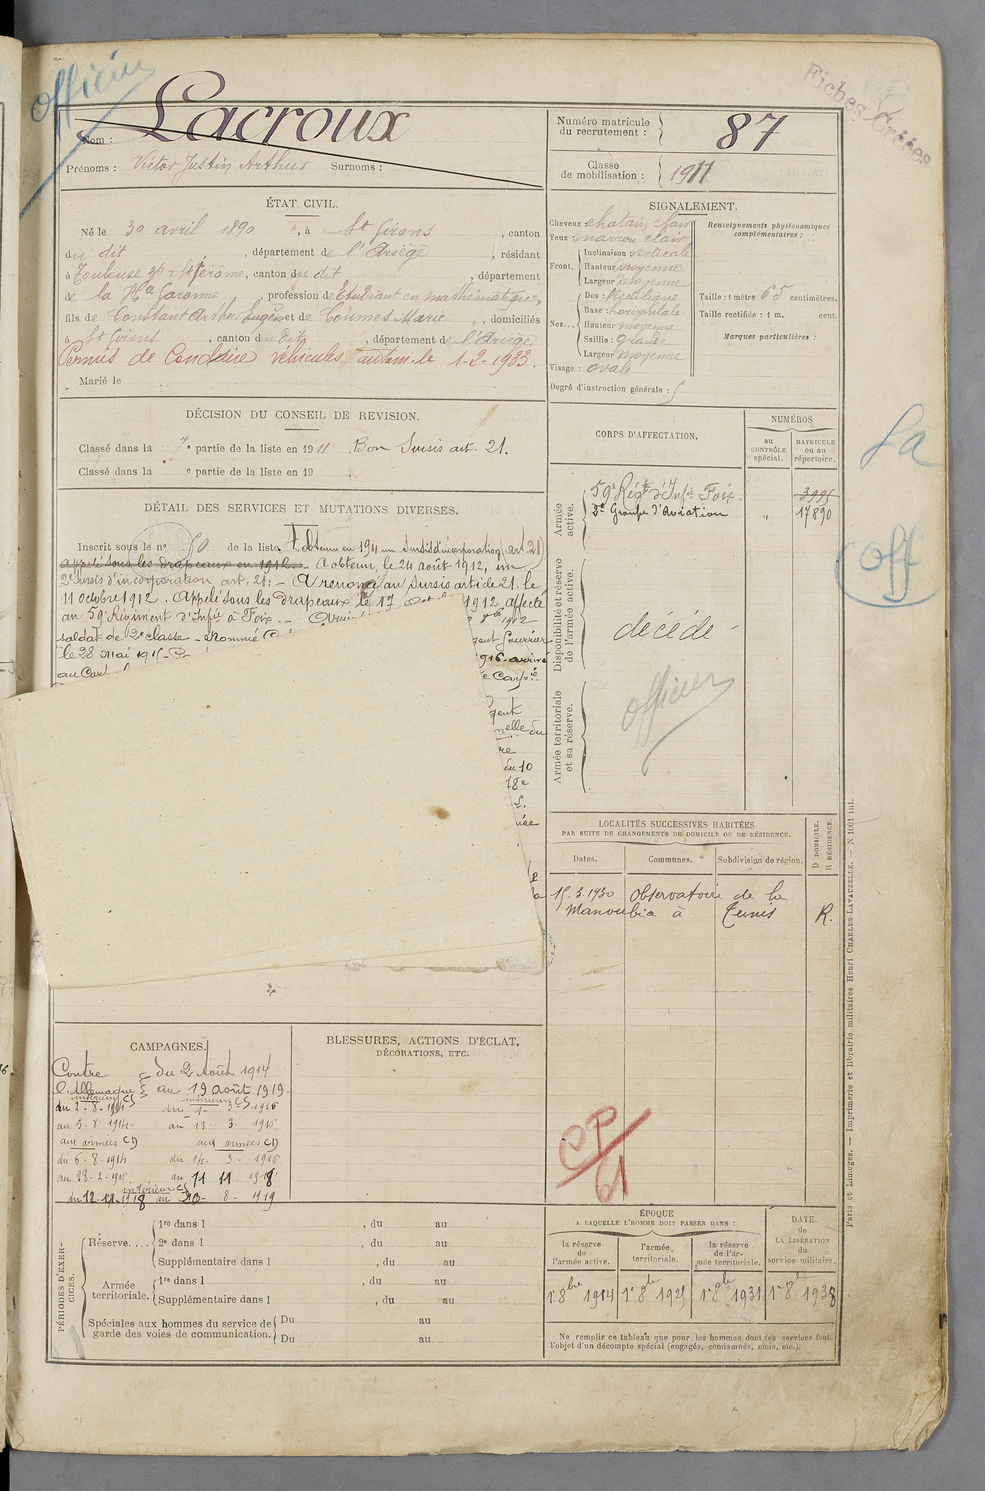 officier
Fiches Créées
Lacroux
Nom :
Prénoms : Victor Justin Arthur Surnoms :
Numéro matricule
du recrutement : 87
Classe
de mobilisation : 1911
ÉTAT CIVIL.
Né le 30 avril 1890, à St Girons, canton
du dit, département de l'Ariège, résidant
à Toulouse, canton du dit, département
de la Hte Garonne, profession de Etudiant en mathématiques,
fils de Constant Arthur Eugène et de Coumes Marie, domiciliés
à St Girons, canton du dit, département de l'Ariège
Permis de Conduire véhicules autom. le 1-2-1933.
Marié le
SIGNALEMENT.
Cheveux : chatain clair
Yeux : marron clair
Front. Inclinaison verticale
Hauteur moyenne
Largeur moyenne
Nez... Dos : Rectiligne
Base : horizontale
Hauteur moyenne
Saillie : grande
Largeur moyenne
Visage : ovale
Degré d'instruction générale : 5
Renseignements physionomiques
complémentaires :
Taille : 1 mètre 65 centimètres.
Taille rectifiée : 1 m. cent.
Marques particulières :
DÉCISION DU CONSEIL DE REVISION.
Classé dans la 7e partie de la liste en 1911 Bon Sursis art. 21.
Classé dans la e partie de la liste en 19
DÉTAIL DES SERVICES ET MUTATIONS DIVERSES.
Inscrit sous le n° 50 de la liste. A obtenu en 1911 un Sursis d'incorporation (art 21)
appelé sous les drapeaux en 1912. A obtenu, le 24 août 1912, un
2e Sursis d'incorporation art. 21. - A renoncé au Sursis article 21. le
11 octobre 1912. Appelé sous les drapeaux le 17 1912, affecté
au 59e Régiment d'Infie à Foix. 1912
soldat de 2e classe - Nommé Fourrier
le 28 Mai 1915 1916 arrivé
au Corps e Compie
gent
nelle du
re
du 10
78e
CORPS D'AFFECTATION.
NUMÉROS
au
CONTRÔLE
spécial.
MATRICULE
OU AU
répertoire.
Armée
active.
59e Régt d'Infie Foix. 3995
2e Groupe d'Aviation " 17890
Disponibilité et réserve
de l'armée active.
décédé
Armée territoriale
et sa réserve.
officier
La
Off
LOCALITÉS SUCCESSIVES HABITÉES
PAR SUITE DE CHANGEMENTS DE DOMICILE OU DE RÉSIDENCE.
Dates. Communes. Subdivision de région.
D DOMICILE.
R RÉSIDENCE.
15.3.1930 Observatoire de la
Manoubia à Tunis R.
CP/61
CAMPAGNES.
Contre du 2 Août 1914
l'Allemagne au 19 août 1919.
intérieur CS intérieur CS
du 2-8-1914 du 1-3-1916
au 5-8-1914 au 13-3-1916
aux armées CD aux armées CD
du 6-8-1914 du 14-3-1916
au 28-2-1916 au 11 11 1918
intérieur CS
du 12-11-1918 au 8-1919
BLESSURES, ACTIONS D'ÉCLAT,
DÉCORATIONS, ETC.
PÉRIODES D'EXERCICES.
Réserve.... 1re dans l , du au
2e dans l , du au
Supplémentaire dans l , du au
Armée
territoriale. 1re dans l , du au
Supplémentaire dans l , du au
Spéciales aux hommes du service de
garde des voies de communication. Du au
Du au
ÉPOQUE
A LAQUELLE L'HOMME DOIT PASSER DANS :
la réserve
de
l'armée active.
l'armée
territoriale.
la réserve
de l'ar-
mée territoriale.
DATE
de
LA LIBÉRATION
du
service militaire.
1er 8bre 1914 1er 8bre 1921 1er 8bre 1931 1er 8 1938
Ne remplir ce tableau que pour les hommes dont les services font
l'objet d'un décompte spécial (engagés, condamnés, omis, etc.).
Paris et Limoges. — Imprimerie et librairie militaires Henri CHARLES-LAVAUZELLE. — N 1001 int.